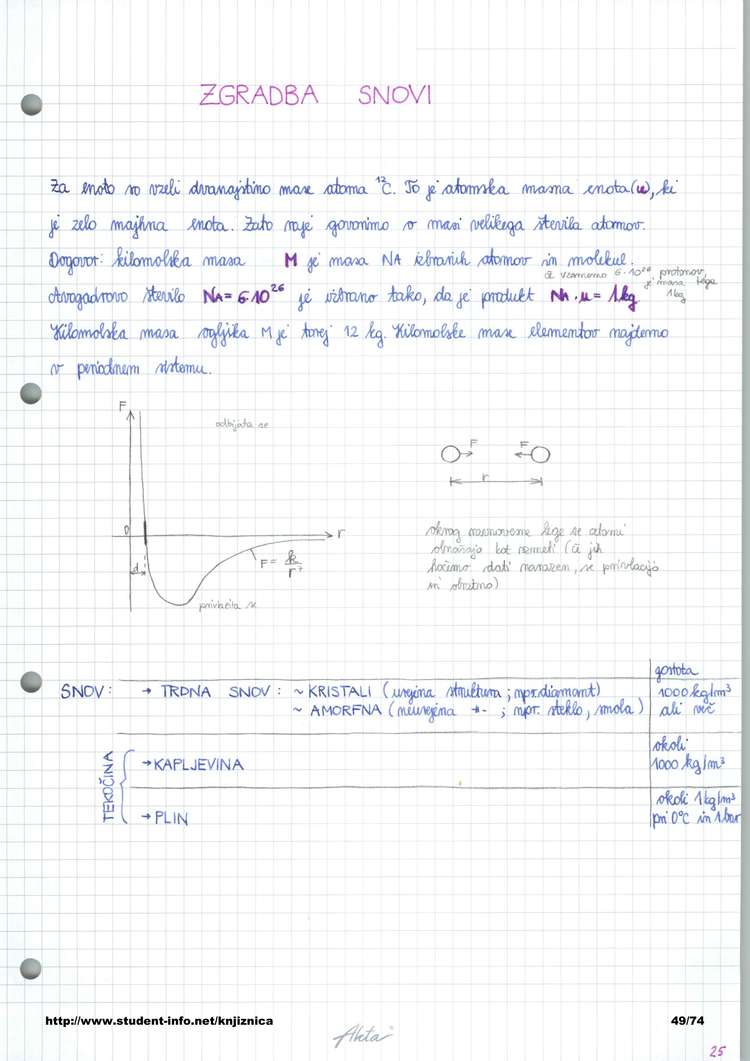 ZGRADBA SNOVI
Za enoto so vzeli dvanajstino mase atoma ¹²C. To je atomska masna enota (u), ki
je zelo majhna enota. Zato raje govorimo o masi velikega števila atomov.
Dogovor: kilomolska masa M je masa NA izbranih atomov in molekul.
če vzamemo 6·10²⁶ protonov,
je masa tega
1kg
Avogadrovo število NA = 6·10²⁶ je izbrano tako, da je produkt NA·u = 1kg
Kilomolska masa ogljika M je torej 12 kg. Kilomolske mase elementov najdemo
v periodnem sistemu.
F
odbijata se
0
r
d
F = k/r⁷
privlačita se
F F
r
okrog ravnovesne lege se atomi
obnašajo kot vzmeti (če jih
hočemo dati narazen, se privlačijo
in obratno)
gostota
SNOV: → TRDNA SNOV: ~ KRISTALI (urejena struktura; npr. diamant) 1000 kg/m³
~ AMORFNA (neurejena -"- ; npr. steklo, smola) ali več
TEKOČINA
→ KAPLJEVINA
okoli
1000 kg/m³
→ PLIN
okoli 1kg/m³
pri 0°C in 1bar
http://www.student-info.net/knjiznica
49/74
25